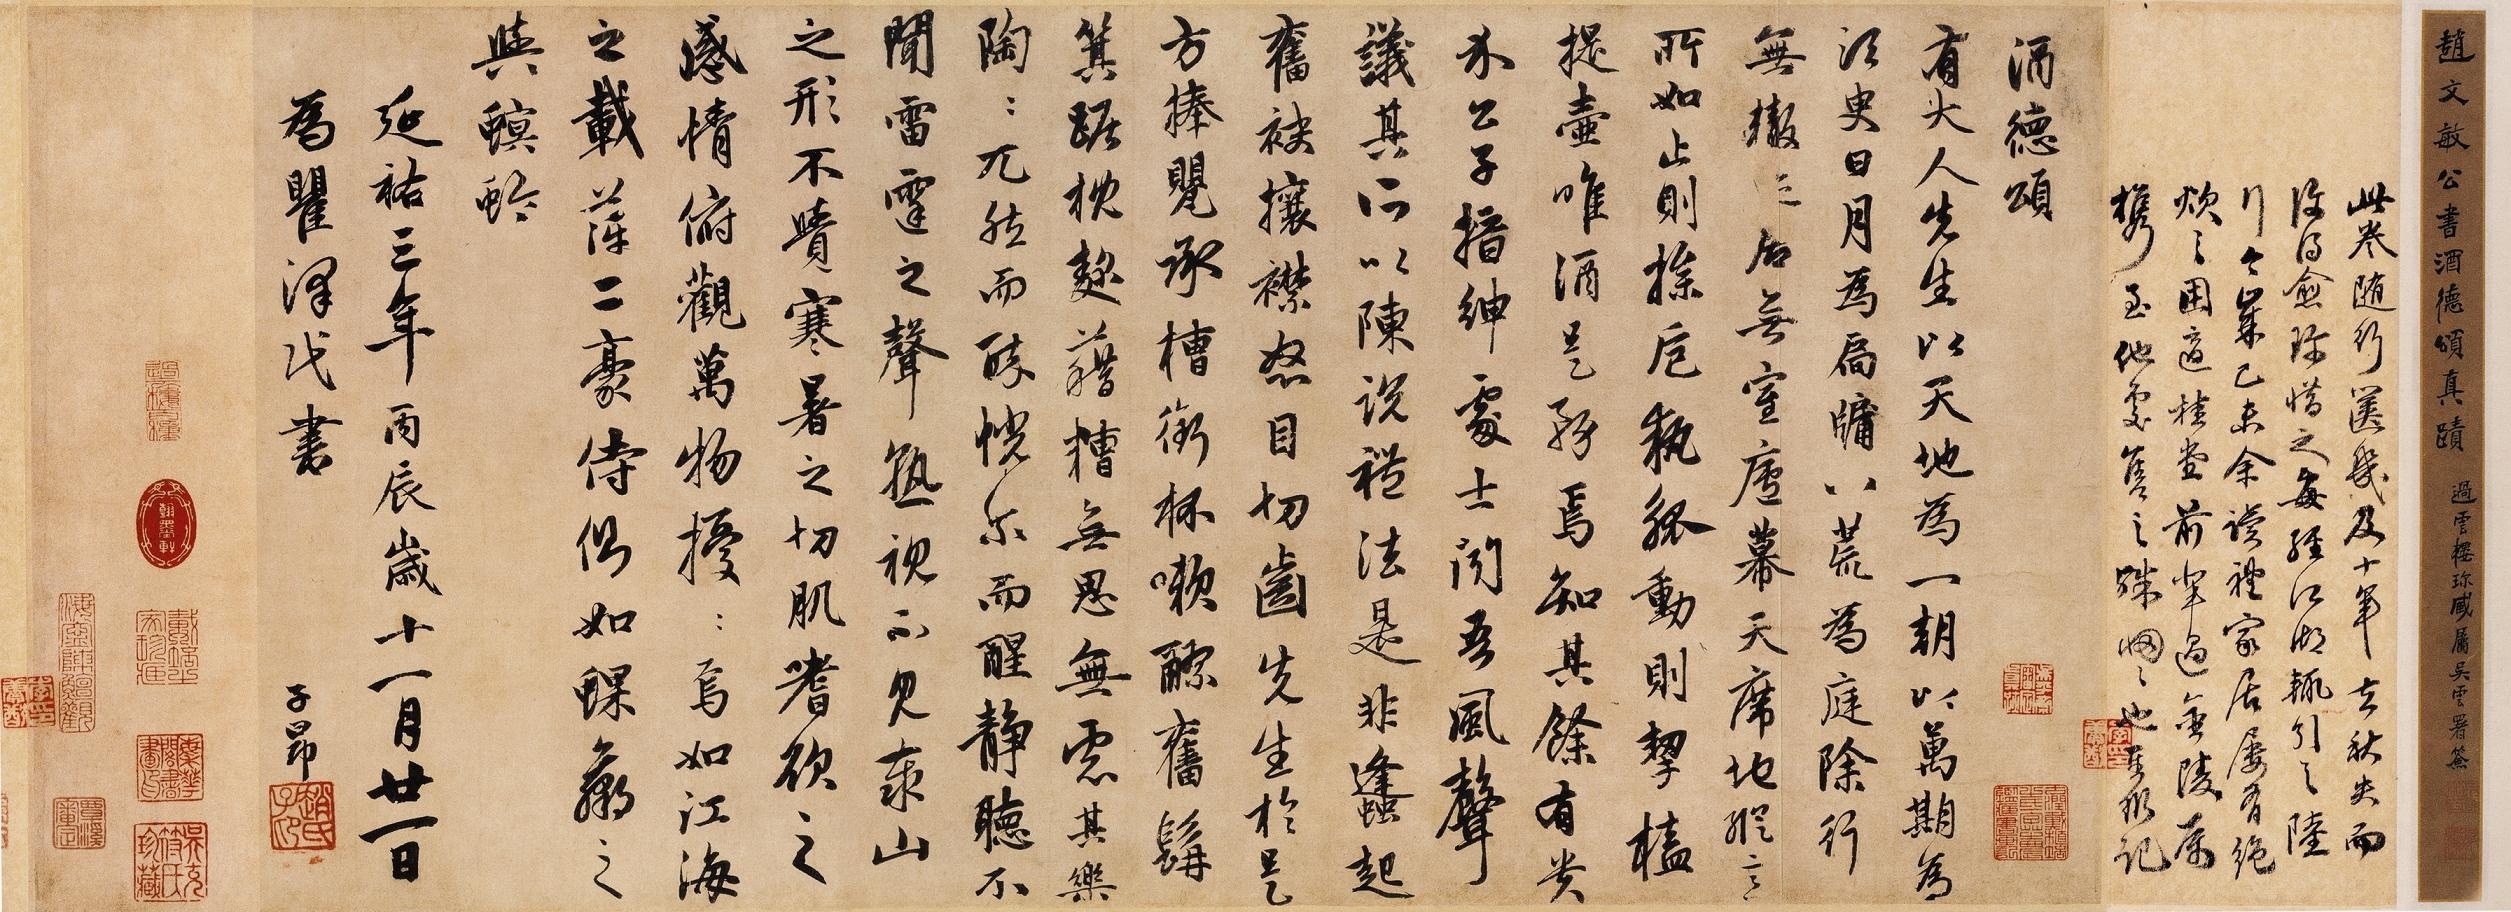 趙文敏公書酒德頌真蹟
過雲樓珍藏屬吳雲署簽
此卷随行篋幾及十年去秋失而
復得愈珍惜之每經江湖輒引之陸
行今歲己未余讀禮家居屢有絶
炊之困適桂堂前輩過金陵屬
携至他處售之殊悵悵也記
酒德頌
有大人先生以天地為一朝以萬期為
須臾日月為扃牖八荒為庭除行
無轍迹居無室廬幕天席地縱意
所如止則操卮執觚動則挈榼
提壺唯酒是務焉知其餘有貴
介公子搢紳處士聞吾風聲
議其所以陳說禮法是非蠭起
奮袂攘襟怒目切齒先生於是
方捧甖承槽銜杯嗽醪奮髯
箕踞枕麴藉糟無思無慮其樂
陶〻兀然而醉恍尔而醒静聽不
聞雷霆之聲熟視不見泰山
之形不覺寒暑之切肌嗜欲之
感情俯觀萬物擾〻焉如江海
之載萍二豪侍側如蜾蠃之
與螟蛉
延祐三年丙辰歲十一月廿一日
為瞿澤民書
子昂